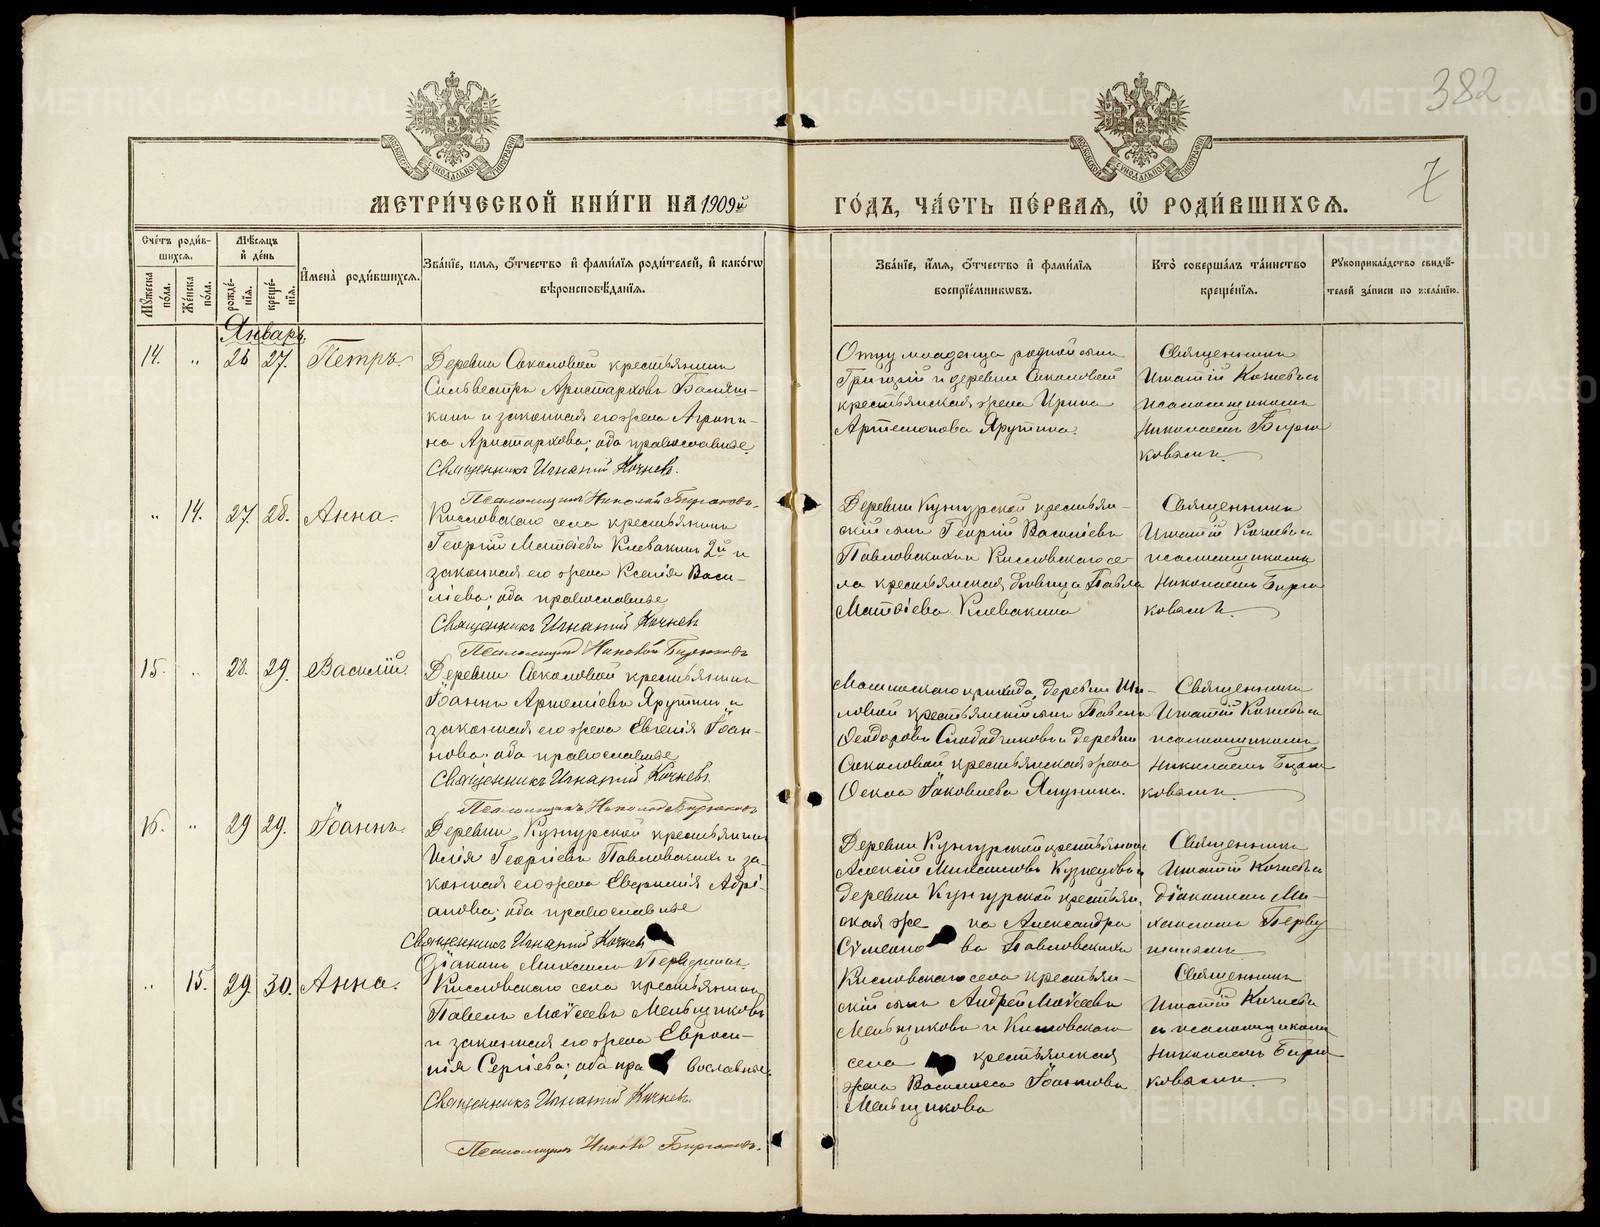 382
7
МЕТРИЧЕСКОЙ КНИГИ НА 1909й ГОДЪ, ЧАСТЬ ПЕРВАЯ, Ѡ РОДИВШИХСЯ.
Счетъ родив-
шихся.
Мужеска
пола.
Женска
пола.
Мѣсяцъ
и день
рожде-
нія.
креще-
нія.
Имена родившихся.
Званіе, имя, отчество и фамилія родителей, и какогѡ
вѣроисповѣданія.
Званіе, имя, отчество и фамилія
воспріемниковъ.
Кто совершалъ таинство
крещенія.
Рукоприкладство свидѣ-
телей записи по желанію.
Январь.
14. " 26 27. Петръ.
Деревни Соколовой крестьянинъ
Сильвестръ Аристарховъ
и законная его жена
Аристархова; оба православные.
Священникъ Игнатій Кочневъ.
Псаломщикъ Николай Бирюковъ.
Отцу младенца родной сынъ
Григорій и деревни Соколовой
крестьянская жена Ирина
Артемонова Ярутина.
Священникъ
Игнатій Кочневъ съ
псаломщикомъ
Николаемъ Бирю
ковымъ.
" 14. 27. 28. Анна.
Кисловскаго села крестьянинъ
Георгій Матѳіевъ Клевакинъ 2й и
законная его жена Ксенія Васи-
ліева; оба православные
Священникъ Игнатій Кочневъ
Псаломщикъ Николай Бирюковъ
Деревни Кунгурской крестьян-
скій сынъ Георгій Василіевъ
Павловскихъ и Кисловскаго се-
ла крестьянская дѣвица Павла
Матѳіева Клевакина
Священникъ
Игнатій Кочневъ съ
псаломщикомъ
Николаемъ Бирю
ковымъ.
15. " 28. 29. Василій
Деревни Соколовой крестьянинъ
Іоаннъ Артеміевъ Ярутинъ и
законная его жена Евгенія Іоан-
нова; оба православные
Священникъ Игнатій Кочневъ.
Псаломщикъ Николай Бирюковъ
прихода, деревни
крестьянскій сынъ Павелъ
Ѳеодоровъ Слободчиковъ и деревни
Соколовой крестьянская жена
Ѳекла Іаковлева
Священникъ
Игнатій Кочневъ съ
псаломщикомъ
Николаемъ Бирю
ковымъ.
16. " 29 29. Іоаннъ.
Деревни Кунгурской крестьянинъ
Илія Георгіевъ Павловскихъ и за
конная его жена Евфимія Адрі-
анова; оба православные
Священникъ Игнатій Кочневъ
Діаконъ Михаилъ Первушинъ.
Деревни Кунгурской крестьянинъ
Алексій Михаиловъ Кузнецовъ и
деревни Кунгурской крестьян
ская же на Александра
Сѵмеоно ва Павловскихъ
Священникъ
Игнатій Кочневъ съ
діакономъ Ми-
хаиломъ Перву
шинымъ
" 15. 29. 30. Анна.
Кисловскаго села крестьянинъ
Павелъ Моѵсеевъ Меньщиковъ
и законная его жена Евфроси-
нія Сергіева; оба пра вославные.
Священникъ Игнатій Кочневъ.
Псаломщикъ Николай Бирюковъ.
Кисловскаго села крестьян-
скій сынъ Андрей Моѵсеевъ
Меньщиковъ и Кисловскаго
села крестьянская
жена Васса Іоаннова
Меньщикова
Священникъ
Игнатій Кочневъ
съ псаломщикомъ
Николаемъ Бирю
ковымъ.
METRIKI.GASO-URAL.RU